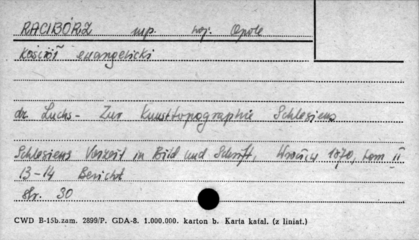 RACIBÓRZ mp. woj. Opole
Kościół ewangelicki
dr. Luchs - Zur Kunsttopographie Schlesiens
Schlesiens Vorzeit in Bild und Schrift, Wrocław 1870, tom II
13-14 Bericht
str. 30
CWD B-15b.zam. 2899/P. GDA-8. 1.000.000. karton b. Karta katal. (z liniat.)